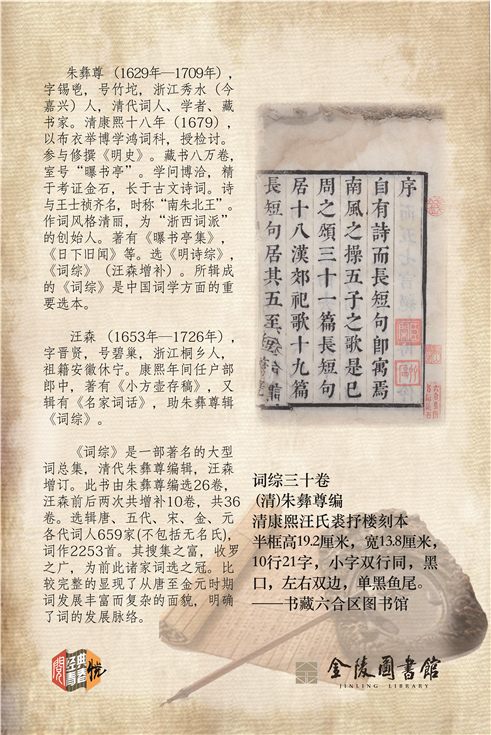 朱彝尊（1629年—1709年），
字锡鬯，号竹垞，浙江秀水（今
嘉兴）人，清代词人、学者、藏
书家。清康熙十八年（1679），
以布衣举博学鸿词科，授检讨。
参与修撰《明史》。藏书八万卷，
室号“曝书亭”。学问博洽，精
于考证金石，长于古文诗词。诗
与王士祯齐名，时称“南朱北王”。
作词风格清丽，为“浙西词派”
的创始人。著有《曝书亭集》，
《日下旧闻》等。选《明诗综》，
《词综》（汪森增补）。所辑成
的《词综》是中国词学方面的重
要选本。
汪森（1653年—1726年），
字晋贤，号碧巢，浙江桐乡人，
祖籍安徽休宁。康熙年间任户部
郎中，著有《小方壶存稿》，又
辑有《名家词话》，助朱彝尊辑
《词综》。
《词综》是一部著名的大型
词总集，清代朱彝尊编辑，汪森
增订。此书由朱彝尊编选26卷，
汪森前后两次共增补10卷，共36
卷。选辑唐、五代、宋、金、元
各代词人659家(不包括无名氏)，
词作2253首。其搜集之富，收罗
之广，为前此诸家词选之冠。比
较完整的显现了从唐至金元时期
词发展丰富而复杂的面貌，明确
了词的发展脉络。
序
自有詩而長短句即寓焉
南風之操五子之歌是已
周之頌三十一篇長短句
居十八漢郊祀歌十九篇
長短句居其五至
词综三十卷
(清)朱彝尊编
清康熙汪氏裘抒楼刻本
半框高19.2厘米，宽13.8厘米，
10行21字，小字双行同，黑
口，左右双边，单黑鱼尾。
——书藏六合区图书馆
阅经典青春悦
金陵圖書館
JINLING LIBRARY